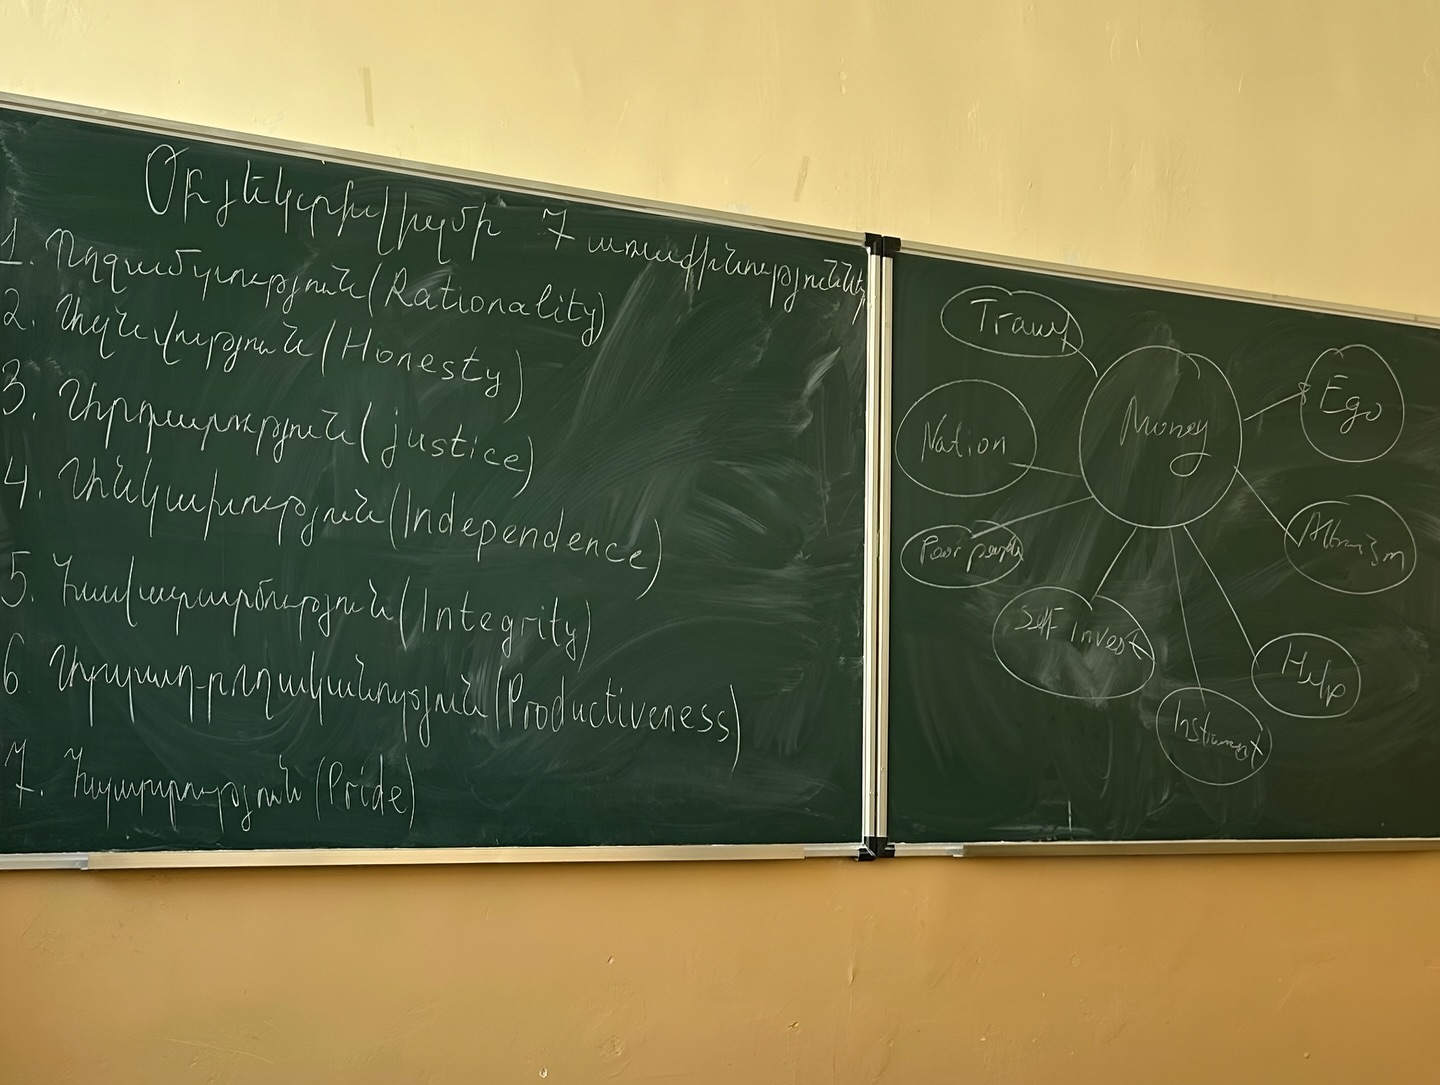 Օբյեկտիվիզմի 7 առաքինությունները
1. Ողջամտություն (Rationality)
2. Ազնվություն (Honesty)
3. Արդարություն (justice)
4. Անկախություն (Independence)
5. (Integrity)
6. Արտադրողականություն (Productiveness)
7. Հպարտություն (Pride)
Money
Ego
Nation
Altruizm
Poor people
Self invest
Help
Instrument